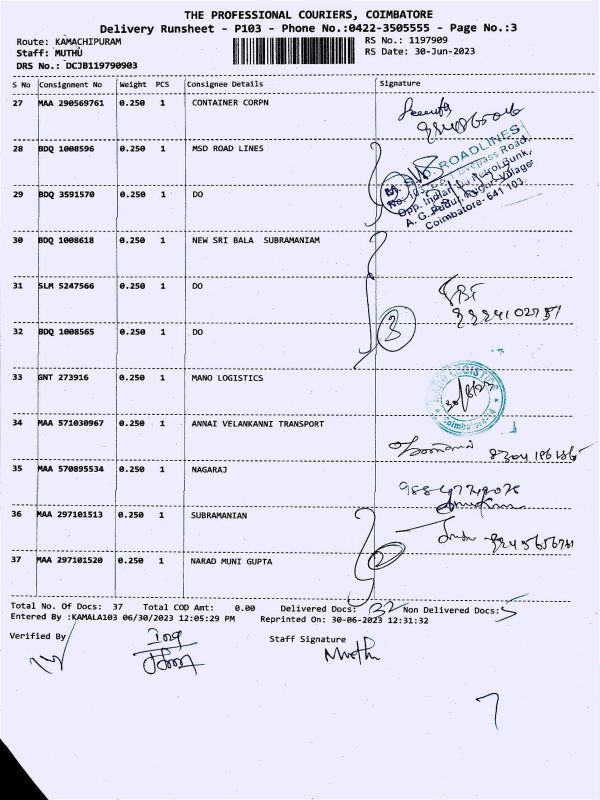 THE PROFESSIONAL COURIERS, COIMBATORE
Delivery Runsheet - P103 - Phone No.:0422-3505555 - Page No.:3
Route: KAMACHIPURAM RS No.: 1197909
Staff: MUTHU RS Date: 30-Jun-2023
DRS No.: DCJB119790903
S No Consignment No Weight PCS Consignee Details Signature
27 MAA 290569761 0.250 1 CONTAINER CORPN
28 BDQ 1008596 0.250 1 MSD ROAD LINES
ROADLINES
Opp. Indian
Coimbatore- 641 103.
29 BDQ 3591570 0.250 1 DO
30 BDQ 1008618 0.250 1 NEW SRI BALA SUBRAMANIAM
31 SLM 5247566 0.250 1 DO
32 BDQ 1008565 0.250 1 DO
3
33 GNT 273916 0.250 1 MANO LOGISTICS
34 MAA 571030967 0.250 1 ANNAI VELANKANNI TRANSPORT
35 MAA 570895534 0.250 1 NAGARAJ
36 MAA 297101513 0.250 1 SUBRAMANIAN
37 MAA 297101520 0.250 1 NARAD MUNI GUPTA
2
Total No. Of Docs: 37 Total COD Amt: 0.00 Delivered Docs: 32 Non Delivered Docs: 5
Entered By :KAMALA103 06/30/2023 12:05:29 PM Reprinted On: 30-06-2023 12:31:32
Verified By Staff Signature
Muthu
7